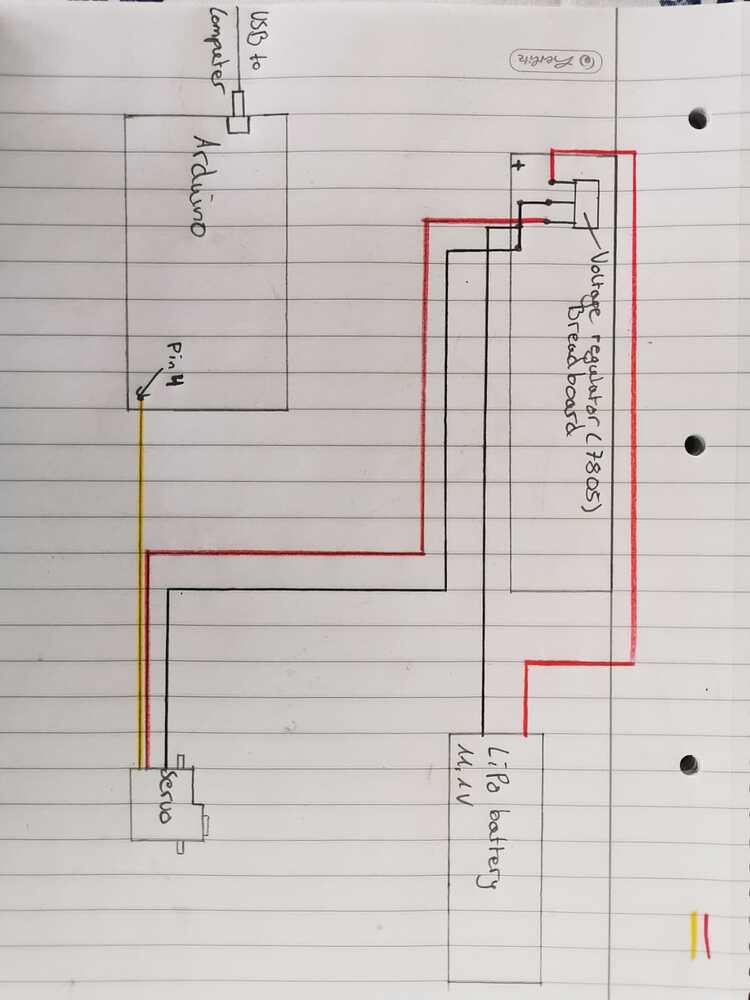 © herlitz
+
Voltage regulator (7805)
Breadboard
USB to
Computer
Arduino
Pin 4
LiPo battery
11,1V
Servo